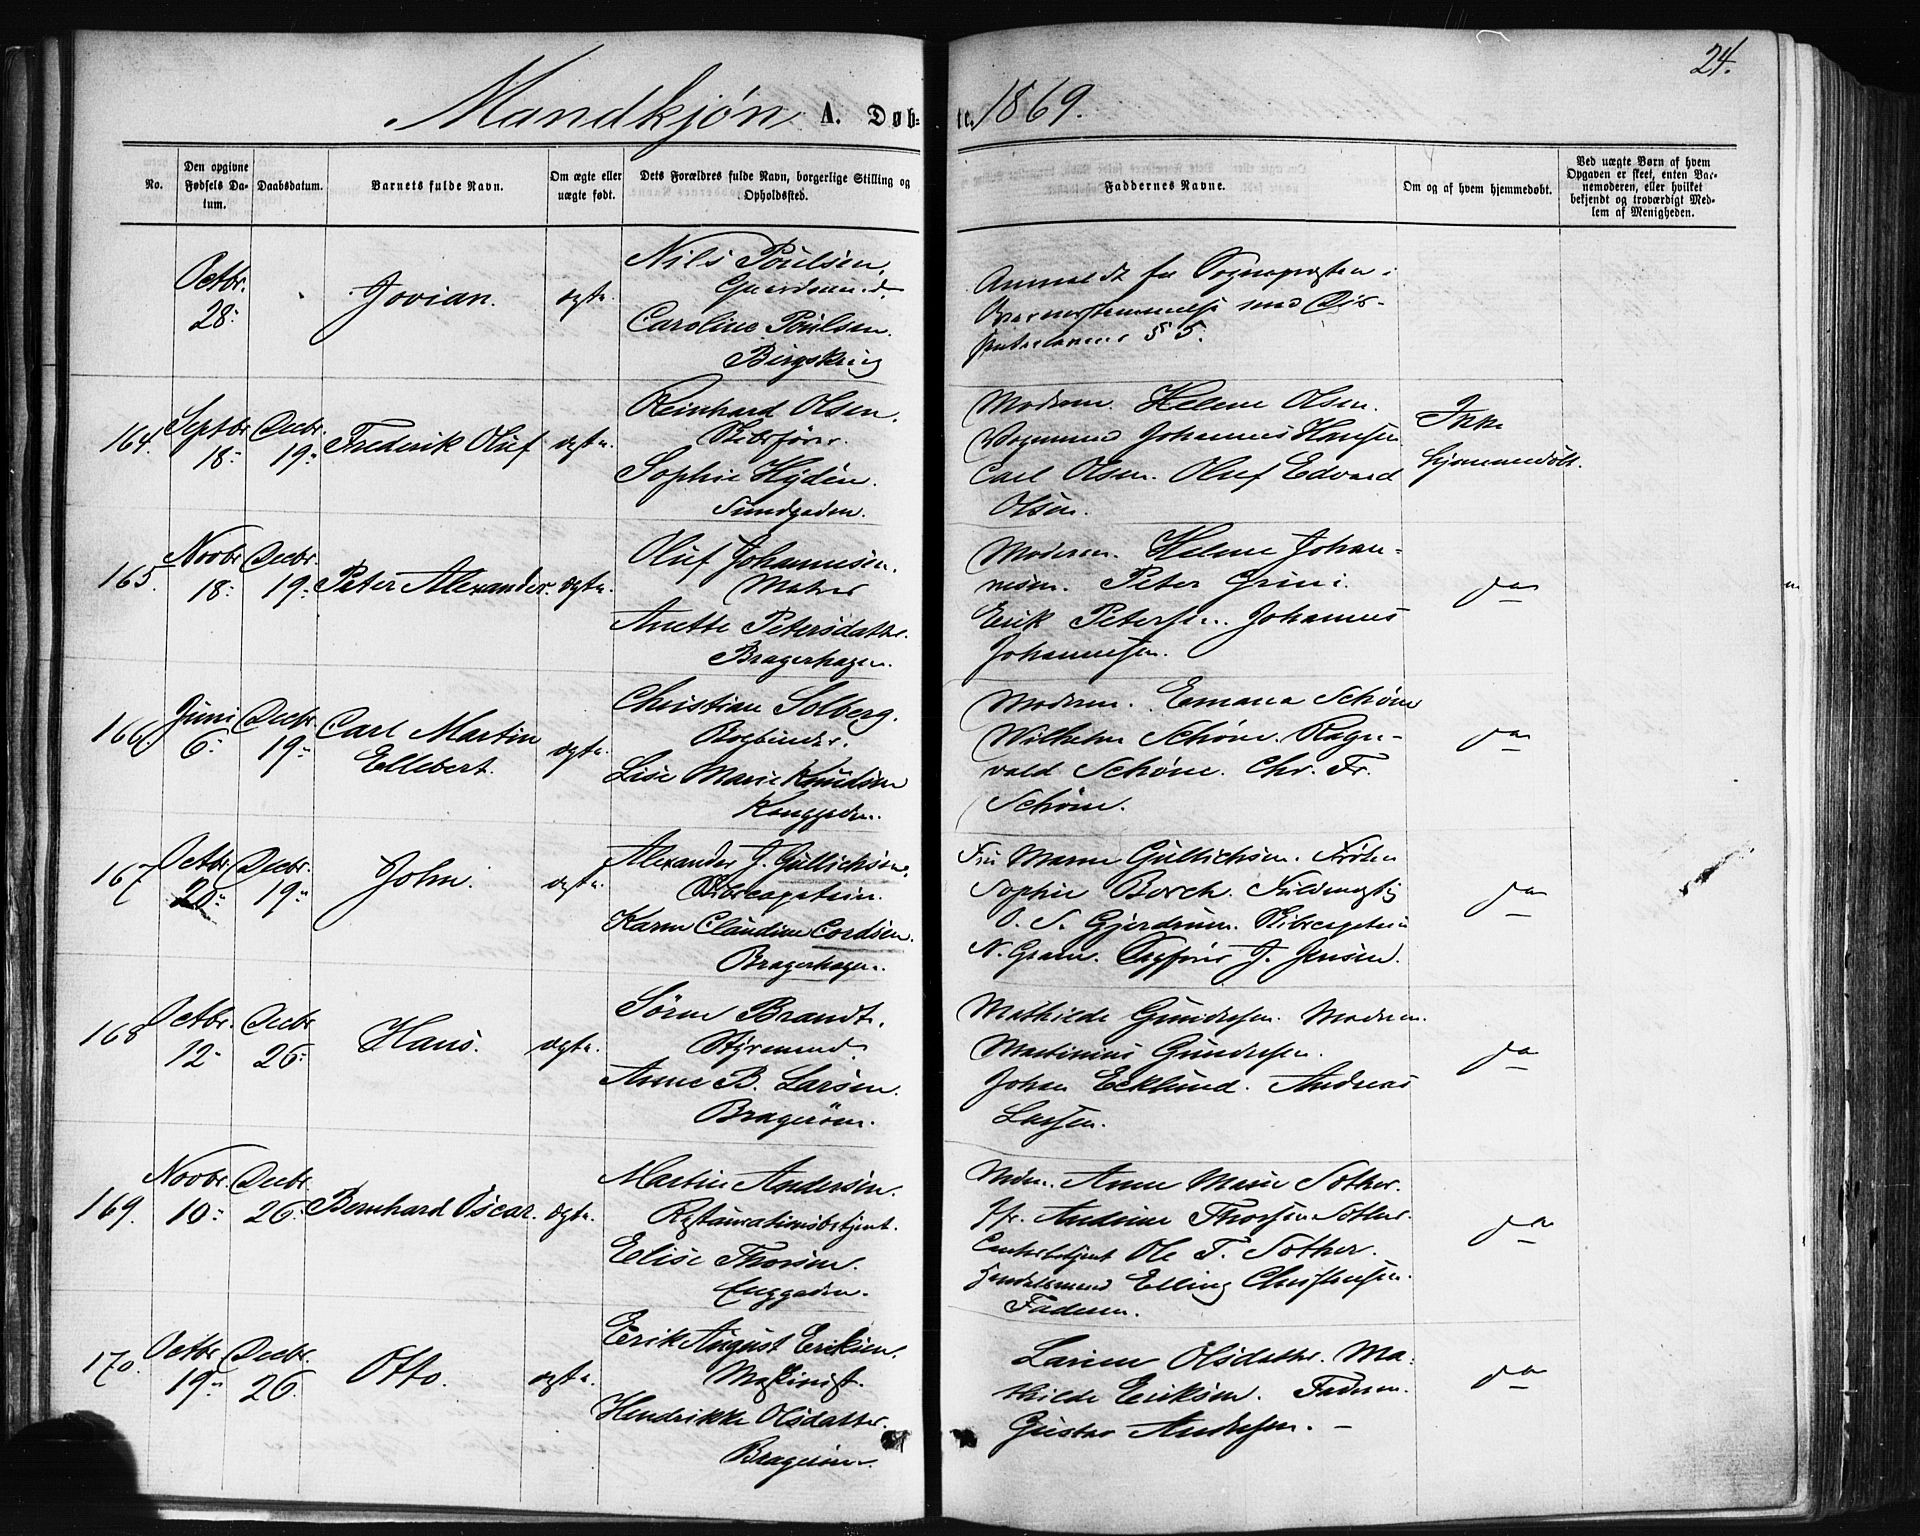 24.
Mandkjøn A. Døb-te. 1869.
No.
Den opgivne Fødsels Da-tum.
Daabsdatum.
Barnets fulde Navn.
Om ægte eller uægte født.
Dets Forældres fulde Navn, borgerlige Stilling og Opholdssted.
Faddernes Navne.
Om og af hvem hjemmedøbt.
Ved uægte Børn af hvem Opgaven er skeet, enten Bar-nemoderen, eller hvilket bekjendt og troværdigt Med-lem af Menigheden.
Octbr. 28.
Jovian.
ægte.
Nils Poulsen,
Gaardmand.
Caroline Poulsen.
Anmeldt for Sognepræsten i
Overensstemmelse med Dis-
senterlovens § 5.
164. Septbr 18. Decbr. 19.
Frederik Oluf
ægte.
Reinhard Olsen.
Skibsfører.
Sophie Hydén.
Sundgaden.
Moderen. Helene Olsen.
Vognmand Johannes Hansen
Carl Olsen. Oluf Edvard
Olsen.
Ikke
hjemmedøbt.
165. Novbr 18. Decbr. 19.
Peter Alexander.
ægte.
Oluf Johannesen.
Matros
Anette Petersdatter.
Bragerhagen.
Moderen. Helene Johan-
nesen. Peter Grini.
Erik Petersen. Johannes
Johannesen.
do
166. Juni 6. Decbr 19.
Carl Martin
Ellebert.
ægte.
Christian Solberg.
Bogbinder.
Lise Marie Knudsen
Konggaden.
Moderen. Emma Schøne
Wilhelm Schøne. Ragn-
vald Schøne. Chr. Fr.
Schøne.
do
167 Octbr. 20. Decbr. 19.
John.
ægte.
Alexander J. Gullichsen.
Skibscaptein.
Karen Claudine Cordsen.
Bragerhagen.
Fru Maren Gullichsen. Frøken
Sophie Borch.
O. S. Gjerdrum. Skibscaptein
N. Gram. J. Jensen.
do
168 Octbr. 12. Decbr 26.
Hans.
ægte.
Søren Brandt.
Styrmand.
Anne B. Larsen.
Bragerøen.
Mathilde Gundersen. Moderen.
Martinius Gundersen.
Johan Ecklund. Andreas
Larsen.
do
169. Novbr. 10. Decbr. 26.
Bernhard Oscar.
ægte.
Martin Andersen.
Restaurationsbetjent.
Elise Thorsen.
Enggaden.
Moderen. Anne Marie Sother.
Jfr. Andrine Thorsen Sother.
Ole T. Sother.
Handelsmand Elling Christensen.
Faderen.
do
170. Octbr 19. Decbr. 26.
Otto.
ægte.
Erik August Eriksen.
Maskinist.
Hendrikke Olsdatter.
Bragerøen.
Larine Olsdatter. Ma-
thilde Eriksen. Faderen.
Gustav Andersen. –
do